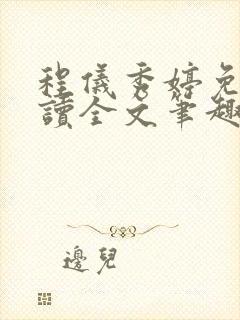 程儀秀婷免
讀全文筆趣
邊兒